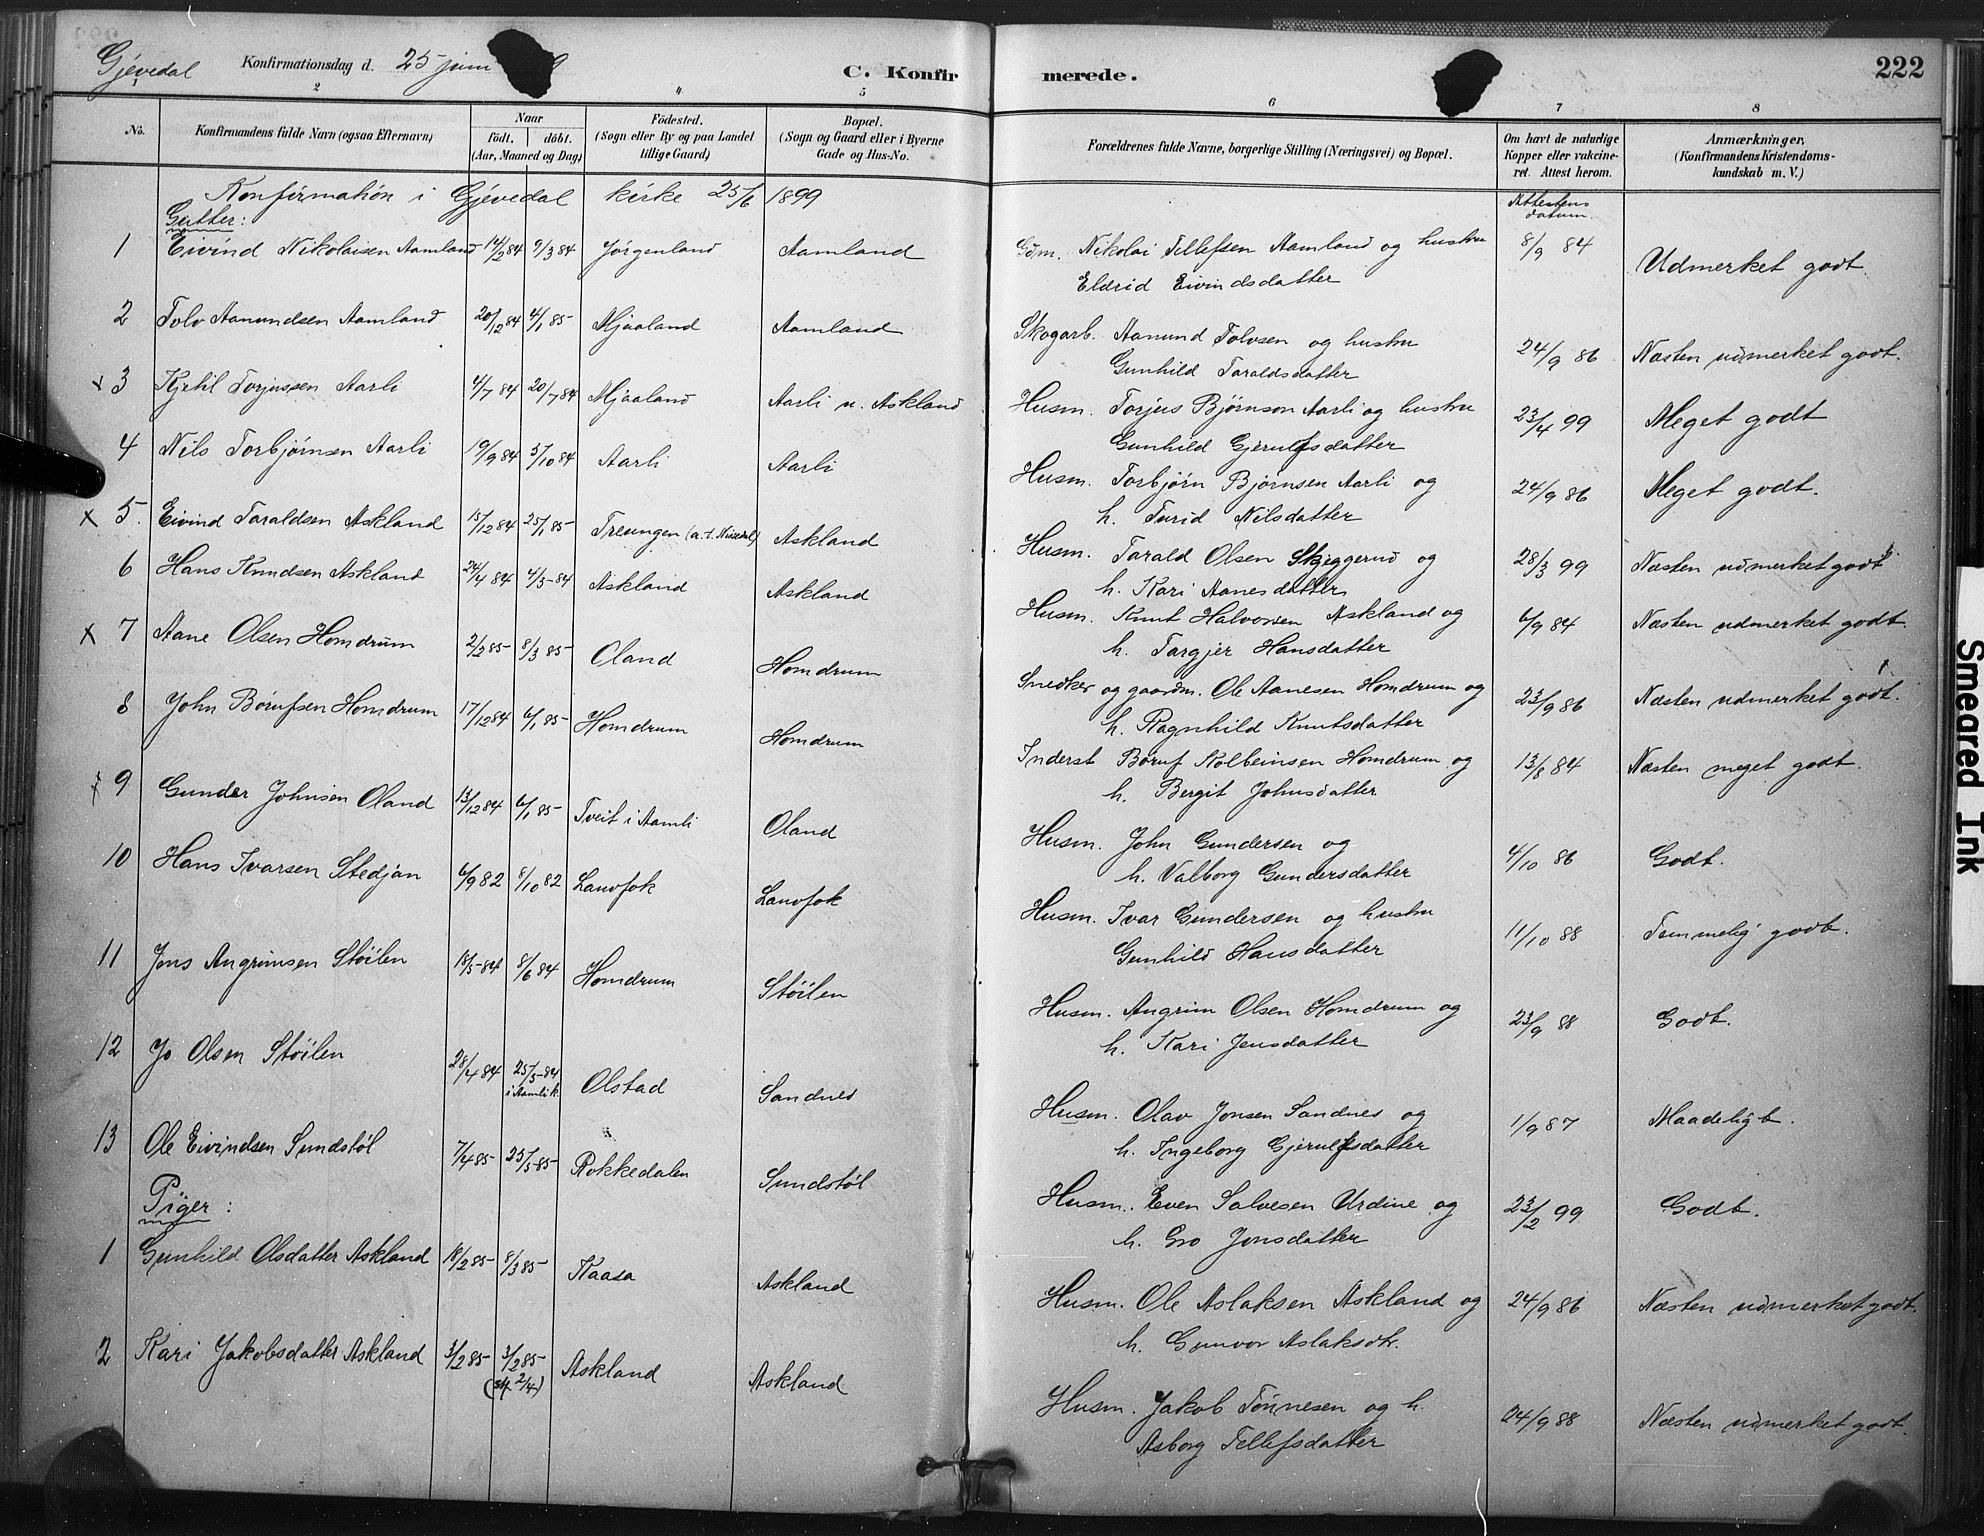 Gjévedal Konfirmationsdag d. 25 juni 9 C. Konfir merede. 222
2 4 5 6 7 8
No. Konfirmandens fulde Navn (ogsaa Efternavn) Naar født. døbt. (Aar, Maaned og Dag) Fødested. (Sogn eller By og paa Landet tillige Gaard) Bopæl. (Sogn og Gaard eller i Byerne Gade og Hus-No. Forældrenes fulde Navne, borgerlige Stilling (Næringsvei) og Bopæl. Om havt de naturlige Kopper eller vakcineret. Attest herom. Anmærkninger. (Konfirmandens Kristendomskundskab m. V.)
Konfirmation i Gjévedal kirke 25/6 1899
Attestens datum.
Gutter:
1 Eivind Nikolaisen Aamland 14/2 84 9/3 84 Jörgenland Aamland Gdm. Nikolai Tellefsen Aamland og hustru 8/9 84 Udmerket godt.
Eldrid Eivindsdatter
2 Tolv Aanundsen Aamland 20/12 84 4/1 85 Mjaaland Aamland Skogarb. Aanund Tolvsen og hustru 24/9 86 Næsten udmerket godt.
Gunhild Taraldsdatter
x 3 Kjetil Torjussen Aarli 4/7 84 20/7 84 Mjaaland Aarli u. Askland Husm. Torjus Bjørnson Aarli og hustru 23/4 99 Meget godt
Gunhild Gjerulfsdatter
4 Nils Torbjørnsen Aarli 19/9 84 5/10 84 Aarli Aarli Husm. Torbjørn Bjørnsen Aarli og 24/9 86 Meget godt.
h. Turid Nilsdatter
x 5. Eivind Taraldsen Askland 15/12 84 25/1 85 Treungen (a. t. Nissedal) Askland Husm. Tarald Olsen Skjeggerud og 28/3 99 Næsten udmerket godt
h. Kari Aanesdatter
6 Hans Knudsen Askland 24/4 84 4/5 84 Askland Askland Husm. Knut Halvorsen Askland og 6/9 84 Næsten udmerket godt
h. Targjer Hansdatter
x 7 Aane Olsen Homdrum 2/2 85 8/3 85 Oland Homdrum Snedker og gaardm. Ole Aanesen Homdrum og 23/9 86 Næsten udmerket godt.
h. Ragnhild Knutsdatter
8 John Börufsen Homdrum 17/12 84 6/1 85 Homdrum Homdrum Inderst Boruf Kolbeinsen Homdrum og 13/8 84 Næsten meget godt.
h. Bergit Johnsdatter
x 9 Gunder Johnsen Oland 13/12 84 6/1 85 Tveit i Aamli Oland Husm. John Gundersen og 4/10 86 Godt.
h. Valborg Gundersdatter
10 Hans Ivarsen Stedjan 6/9 82 8/10 82 Lauvfok Lauvfok Husm. Ivar Gundersen og hustru 11/10 88 Temmelig godt.
Gunhild Hansdatter
11 Jens Angrimsen Stöilen 18/5 84 8/6 84 Homdrum Stöilen Husm. Angrim Olsen Homdrum og 23/9 88 Godt.
h. Kari Jensdatter
12 Jo Olsen Stöilen 28/4 84 25/5 84 i Aamli k. Olstad Sandnes Husm. Olav Jonsen Sandnes og 1/9 87 Maadeligt.
h. Ingeborg Gjerulfsdatter
13 Ole Eivindsen Sundstøl 7/4 85 25/5 85 Rokkedalen Sundstøl Husm. Even Salvesen Urdine og 23/2 99 Godt.
h. Gro Jonsdatter
Piger:
1 Gunhild Olsdatter Askland 18/2 85 8/3 85 Kaasa Askland Husm. Ole Aslaksen Askland og 24/9 86 Næsten udmerket godt.
h. Gunvor Aslaksdtr.
2 Kari Jakobsdatter Askland 3/2 85 3/2 85 (st. 2/4) Askland Askland Husm. Jakob Tönnesen og h. 24/9 88 Næsten udmerket godt.
Asborg Tellefsdatter
Smeared Ink